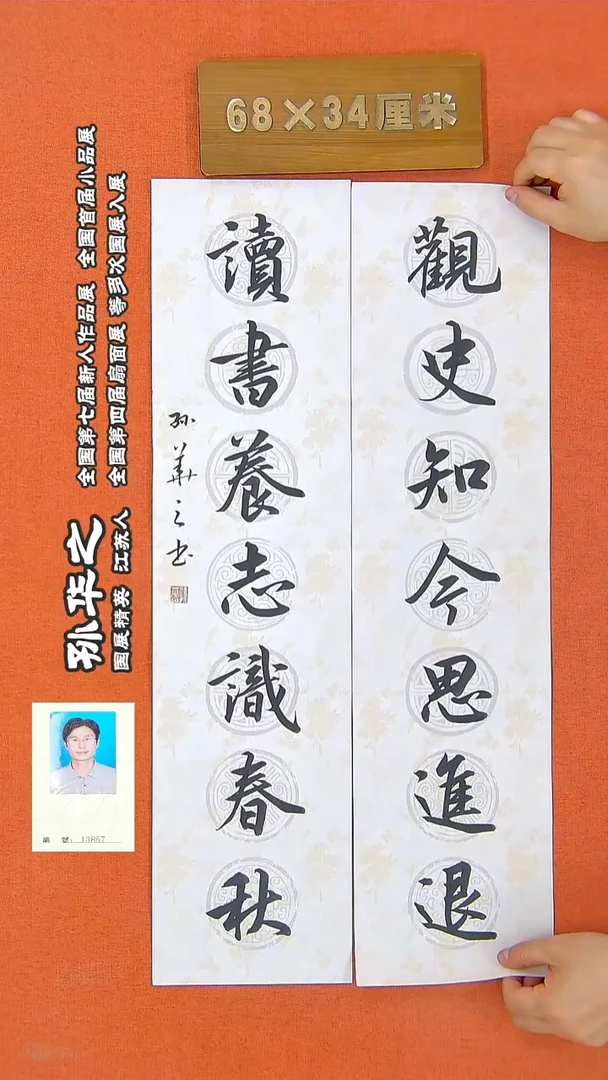 68×34厘米
觀史知今思進退
讀書養志識春秋
孙華之书
孙华之
国展精英 江苏人
全国第七届新人作品展 全国首届小品展
全国第四届扇面展 等多次国展入展
編 號: 13857